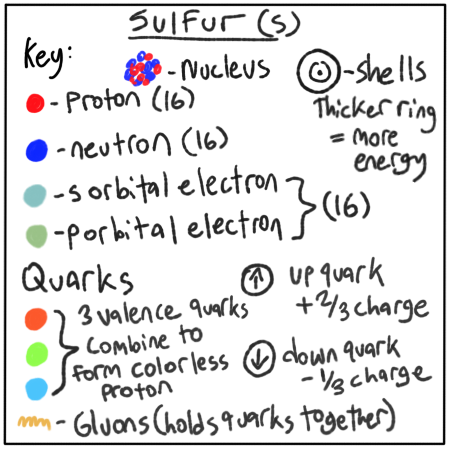 Sulfur (s)
Key:
- Nucleus
- shells
Thicker ring
= more
energy
- Proton (16)
- neutron (16)
- s orbital electron
- p orbital electron
(16)
Quarks
3 valence quarks
combine to
form colorless
proton
up quark
+ 2/3 charge
down quark
- 1/3 charge
- Gluons (holds quarks together)